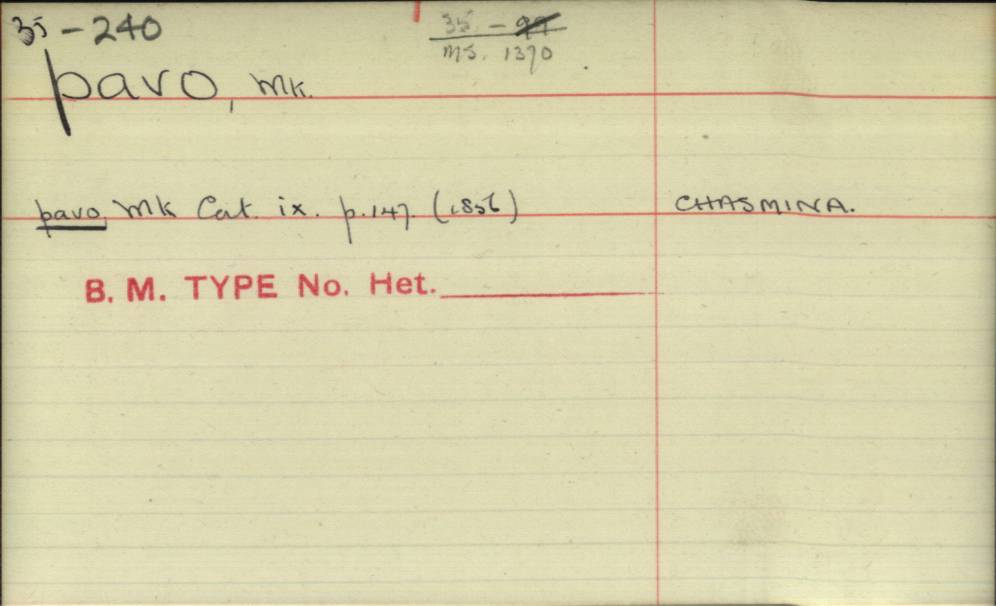 35-240
35. - 99
MS. 1390
pavo, Mk.
pavo, Mk Cat. ix. p.147. (1856) CHASMINA.
B. M. TYPE No. Het.